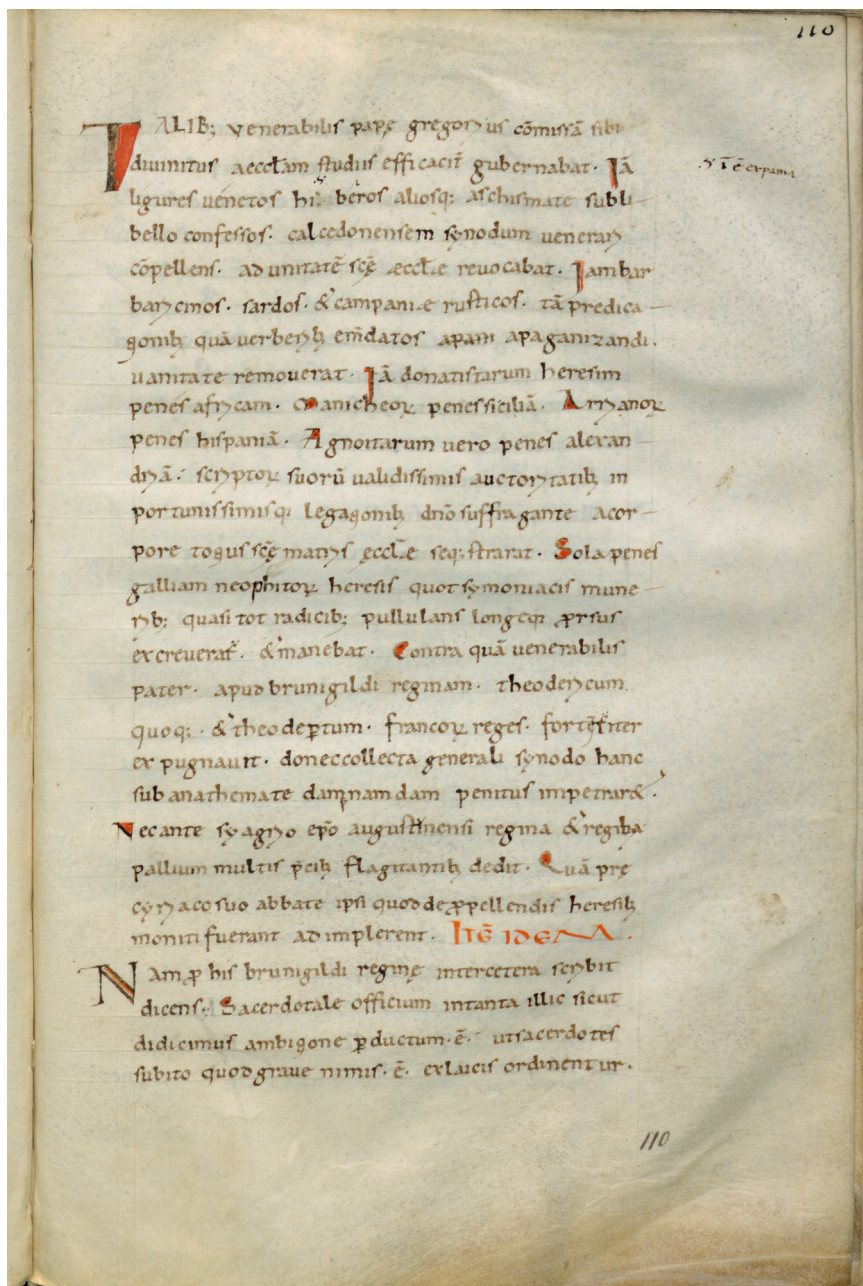 110
TALIB; venerabilis papę gregorius cōmissā sibi
divinitus aecclam studiis efficacit gubernabat. Iā
ligures venetos hi beros aliosq; aschismate subli
bello confessos. calcedonensem synodum venerari
cōpellens. ad unitatē scę æcclæ revocabat. Iambar
baricinos. sardos. & campaniæ rusticos. tā predica
tionib; quā verberib; emdatos apani apaganizandi.
vanitate removerat. Iā donatistarum heresim
penes africam. Manicheoꝝ penessiciliā. Arrianoꝝ
penes hispaniā. Agnoitarum vero penes alexan
driā. scriptoꝝ suorū validissimis auctoritatib; in
portunissimisq; legationib; dno suffragante acor
pore totius scę matris ęcclæ seq;strarat. Sola penes
galliam neophitoꝝ heresis quot symoniacis mune
rib; quasi tot radicib; pullulans longeq; ꝓrsus
excreverat. & manebat. Contra quā venerabilis
pater. apud brunigildi reginam. theodericum
quoq;. & theodeꝑtum. francoꝝ reges. fortiter
expugnavit. doneccollecta generali synodo hanc
sub anathemate damnandam penitus impetrar&.
Necante syagrio epo augustinensi regina & regiba
pallium multis pcib; flagitantib; dedit. Quā prę
cyriacosuo abbate ipsi quod de ꝓpellendis heresib;
moniti fuerant adimplerent. ITĒ IDEM.
Nam ꝓ his brunigildi reginę intercetera scribit
dicens. Sacerdotale officium intanta illic sicut
didicimus ambitione ꝑductum. ē. utsacerdotes
subito quodgrave nimis. ē. exlaicis ordinentur.
110